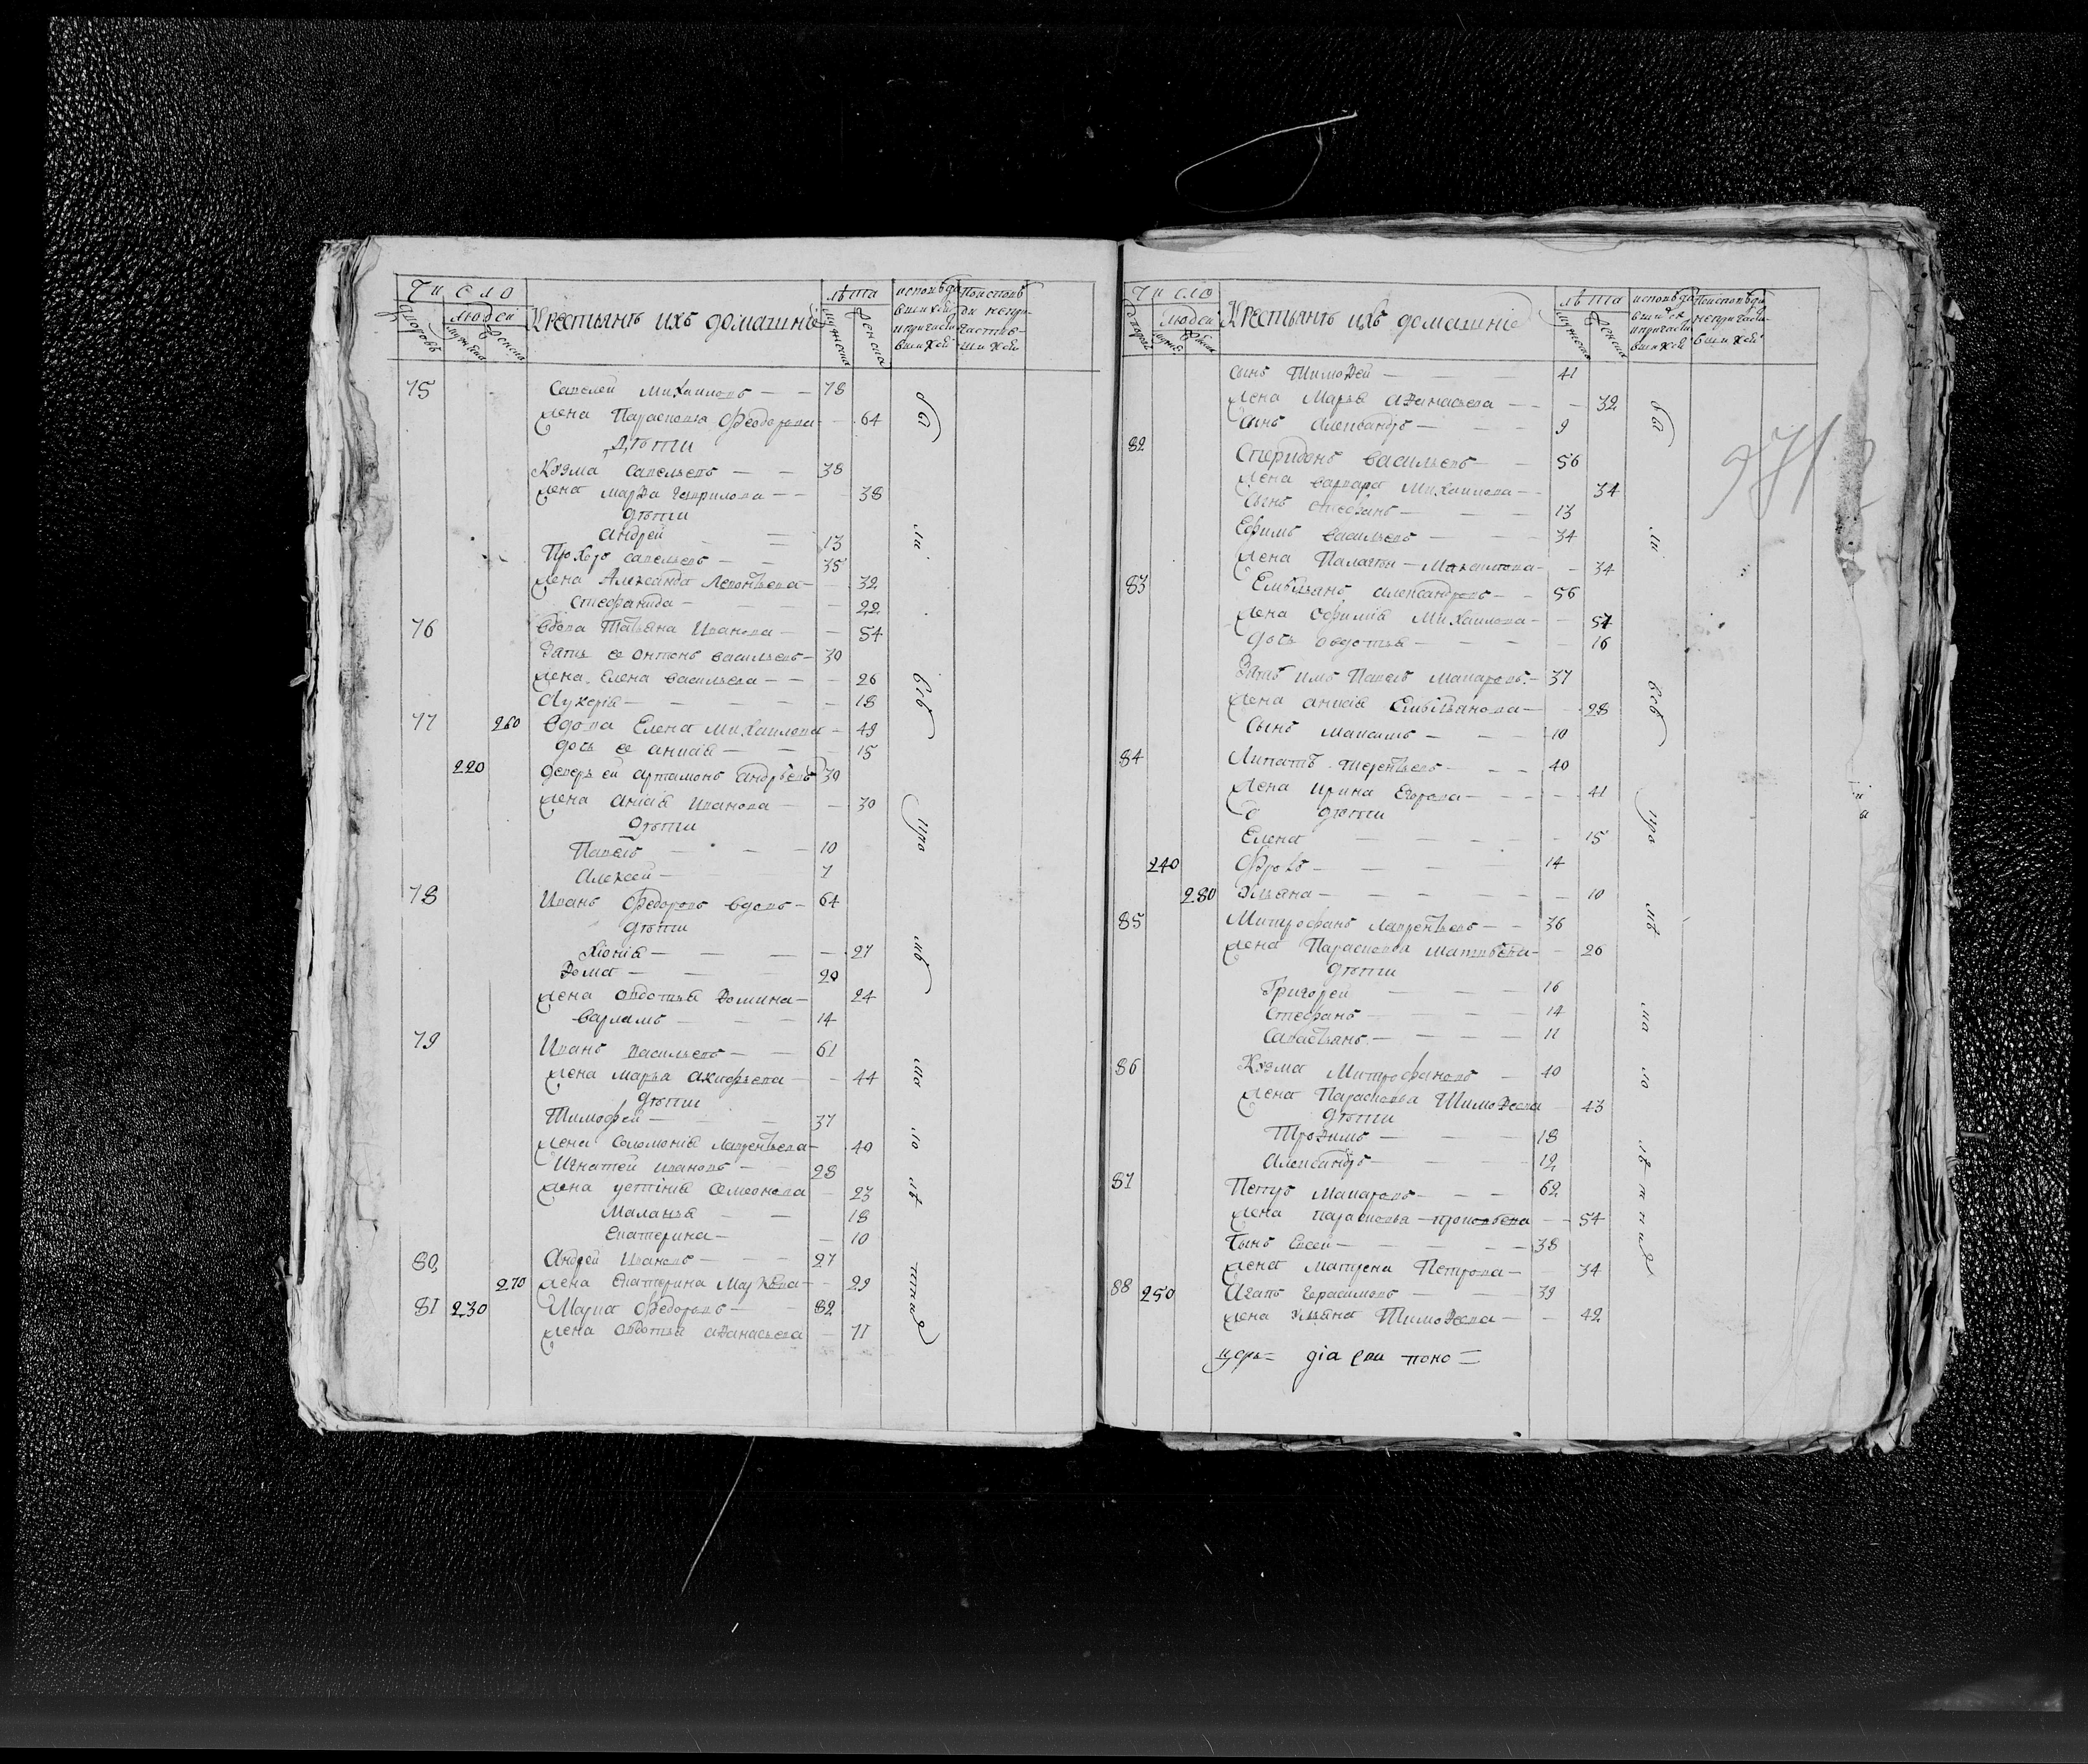 Число
Людей
Дворовъ
мужеска
женска
Крестьянъ ихъ домашніе
лѣта
мужеска
женска
75 Савелей Михаиловъ — — 78
жена Парасковья Феодорова — 64
дѣти
Козма Савельевъ — — 38
жена Марѳа Гаврилова — — 38
дѣти
Андрей 13
Прохоръ Савельевъ — — 35
жена Александра Леонтьева — 32
Стефанида — 22
76 вдова Татьяна Иванова — — 54
зять ее Онтонъ Васильевъ — 30
жена Елена Васильева — — 26
Лукерія — — — 18
77 260 вдова Елена Михаилова — 49
дочь ее Анисія — — 15
220 деверь ей Артамонъ Андрѣевъ 39
жена Анисія Иванова — — 30
дѣти
Павелъ — — 10
Алексей — 7
78 Иванъ Федоровъ вдовъ — 64
дѣти
Хіонія — — — 27
Ѳома — — 20
жена Овдотья Ѳомина — 24
Варламъ — — 14
79 Иванъ Васильевъ — — 61
жена Марья Акифьева — 44
дѣти
Тимофей — — 37
жена Соломонія Лаврентьева — 40
Игнатей Ивановъ — 28
жена Устинія Семеонова 23
Маланья — 18
Екатерина — 10
80 Андрей Ивановъ — — 27
270 жена Екатерина — 29
81 230 Федоровъ — 82
жена Овдотья Аѳанасьева — 71
были
всѣ
Число
Людей
Крестьянъ ихъ домашніе
лѣта
мужеска
женска
сынъ Тимоѳей — 41
жена Марья Аѳанасьева — — 32
сынъ Александръ — 9
82 Спиридонъ Васильевъ — 56
жена Варвара Михаилова — 34
сынъ Стефанъ — 13
Ефимъ Васильевъ — 34
жена Палагѣя — Максимова — 34
83 Емѣльянъ Александровъ — 56
жена Офимія Михаилова — 54
дочь Овдотья — 16
зять имъ Павелъ Макаровъ — 37
жена Анисія Емѣльянова — 28
сынъ Максимъ — 10
84 Липатъ Терентьевъ — — 40
жена Ирина Егорова — — 41
дѣти
Елена — 15
240 Фролъ — 14
280 Ульяна — 10
85 Митрофанъ Лаврентьевъ — 36
жена Парасковья Матвѣева — 26
дѣти
Григорей — 16
Стефанъ — 14
Савастьянъ — 11
86 Козма Митрофановъ — 40
жена Парасковья Тимоѳеева 43
дѣти
Троѳимъ — 18
Александръ — 12
87 Петръ Макаровъ — — 62
жена Парасковья Прокофьева — 54
сынъ Евсей — 38
жена Матрена Петрова — 34
88 250 Агапъ Герасимовъ — 39
жена Ульяна Тимоѳеева — 42
были
всѣ